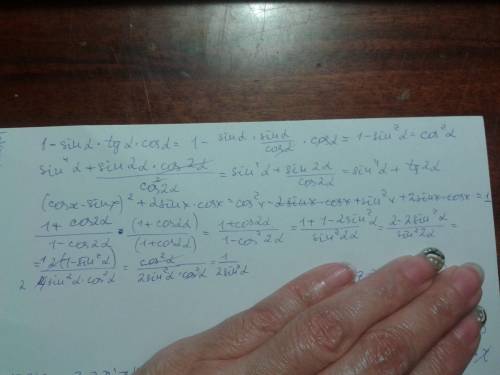 1 - sin α · tg α · cos α = 1 - sin α · sin α / cos α · cos α = 1 - sin²α = cos²α
sin⁴α + sin 2α · cos 2α / cos² 2α = sin⁴α + sin 2α / cos 2α = sin⁴α + tg 2α
(cos x - sin x)² + 2 sin x · cos x = cos²x - 2 sin x · cos x + sin²x + 2 sin x · cos x = 1
1 + cos 2α / 1 - cos 2α · (1 + cos 2α) / (1 + cos 2α) = 1 + cos 2α / 1 - cos² 2α = 1 + 1 - 2 sin²α / sin² 2α = 2 - 2 sin²α / sin² 2α =
= 2 (1 - sin²α) / 4 sin²α · cos²α = cos²α / 2 sin²α · cos²α = 1 / 2 sin²α